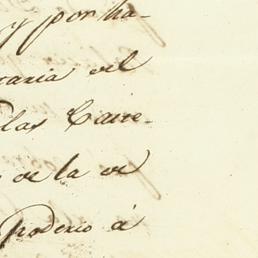 y por ha-
taria del
las Carre-
de la de
Poderio á